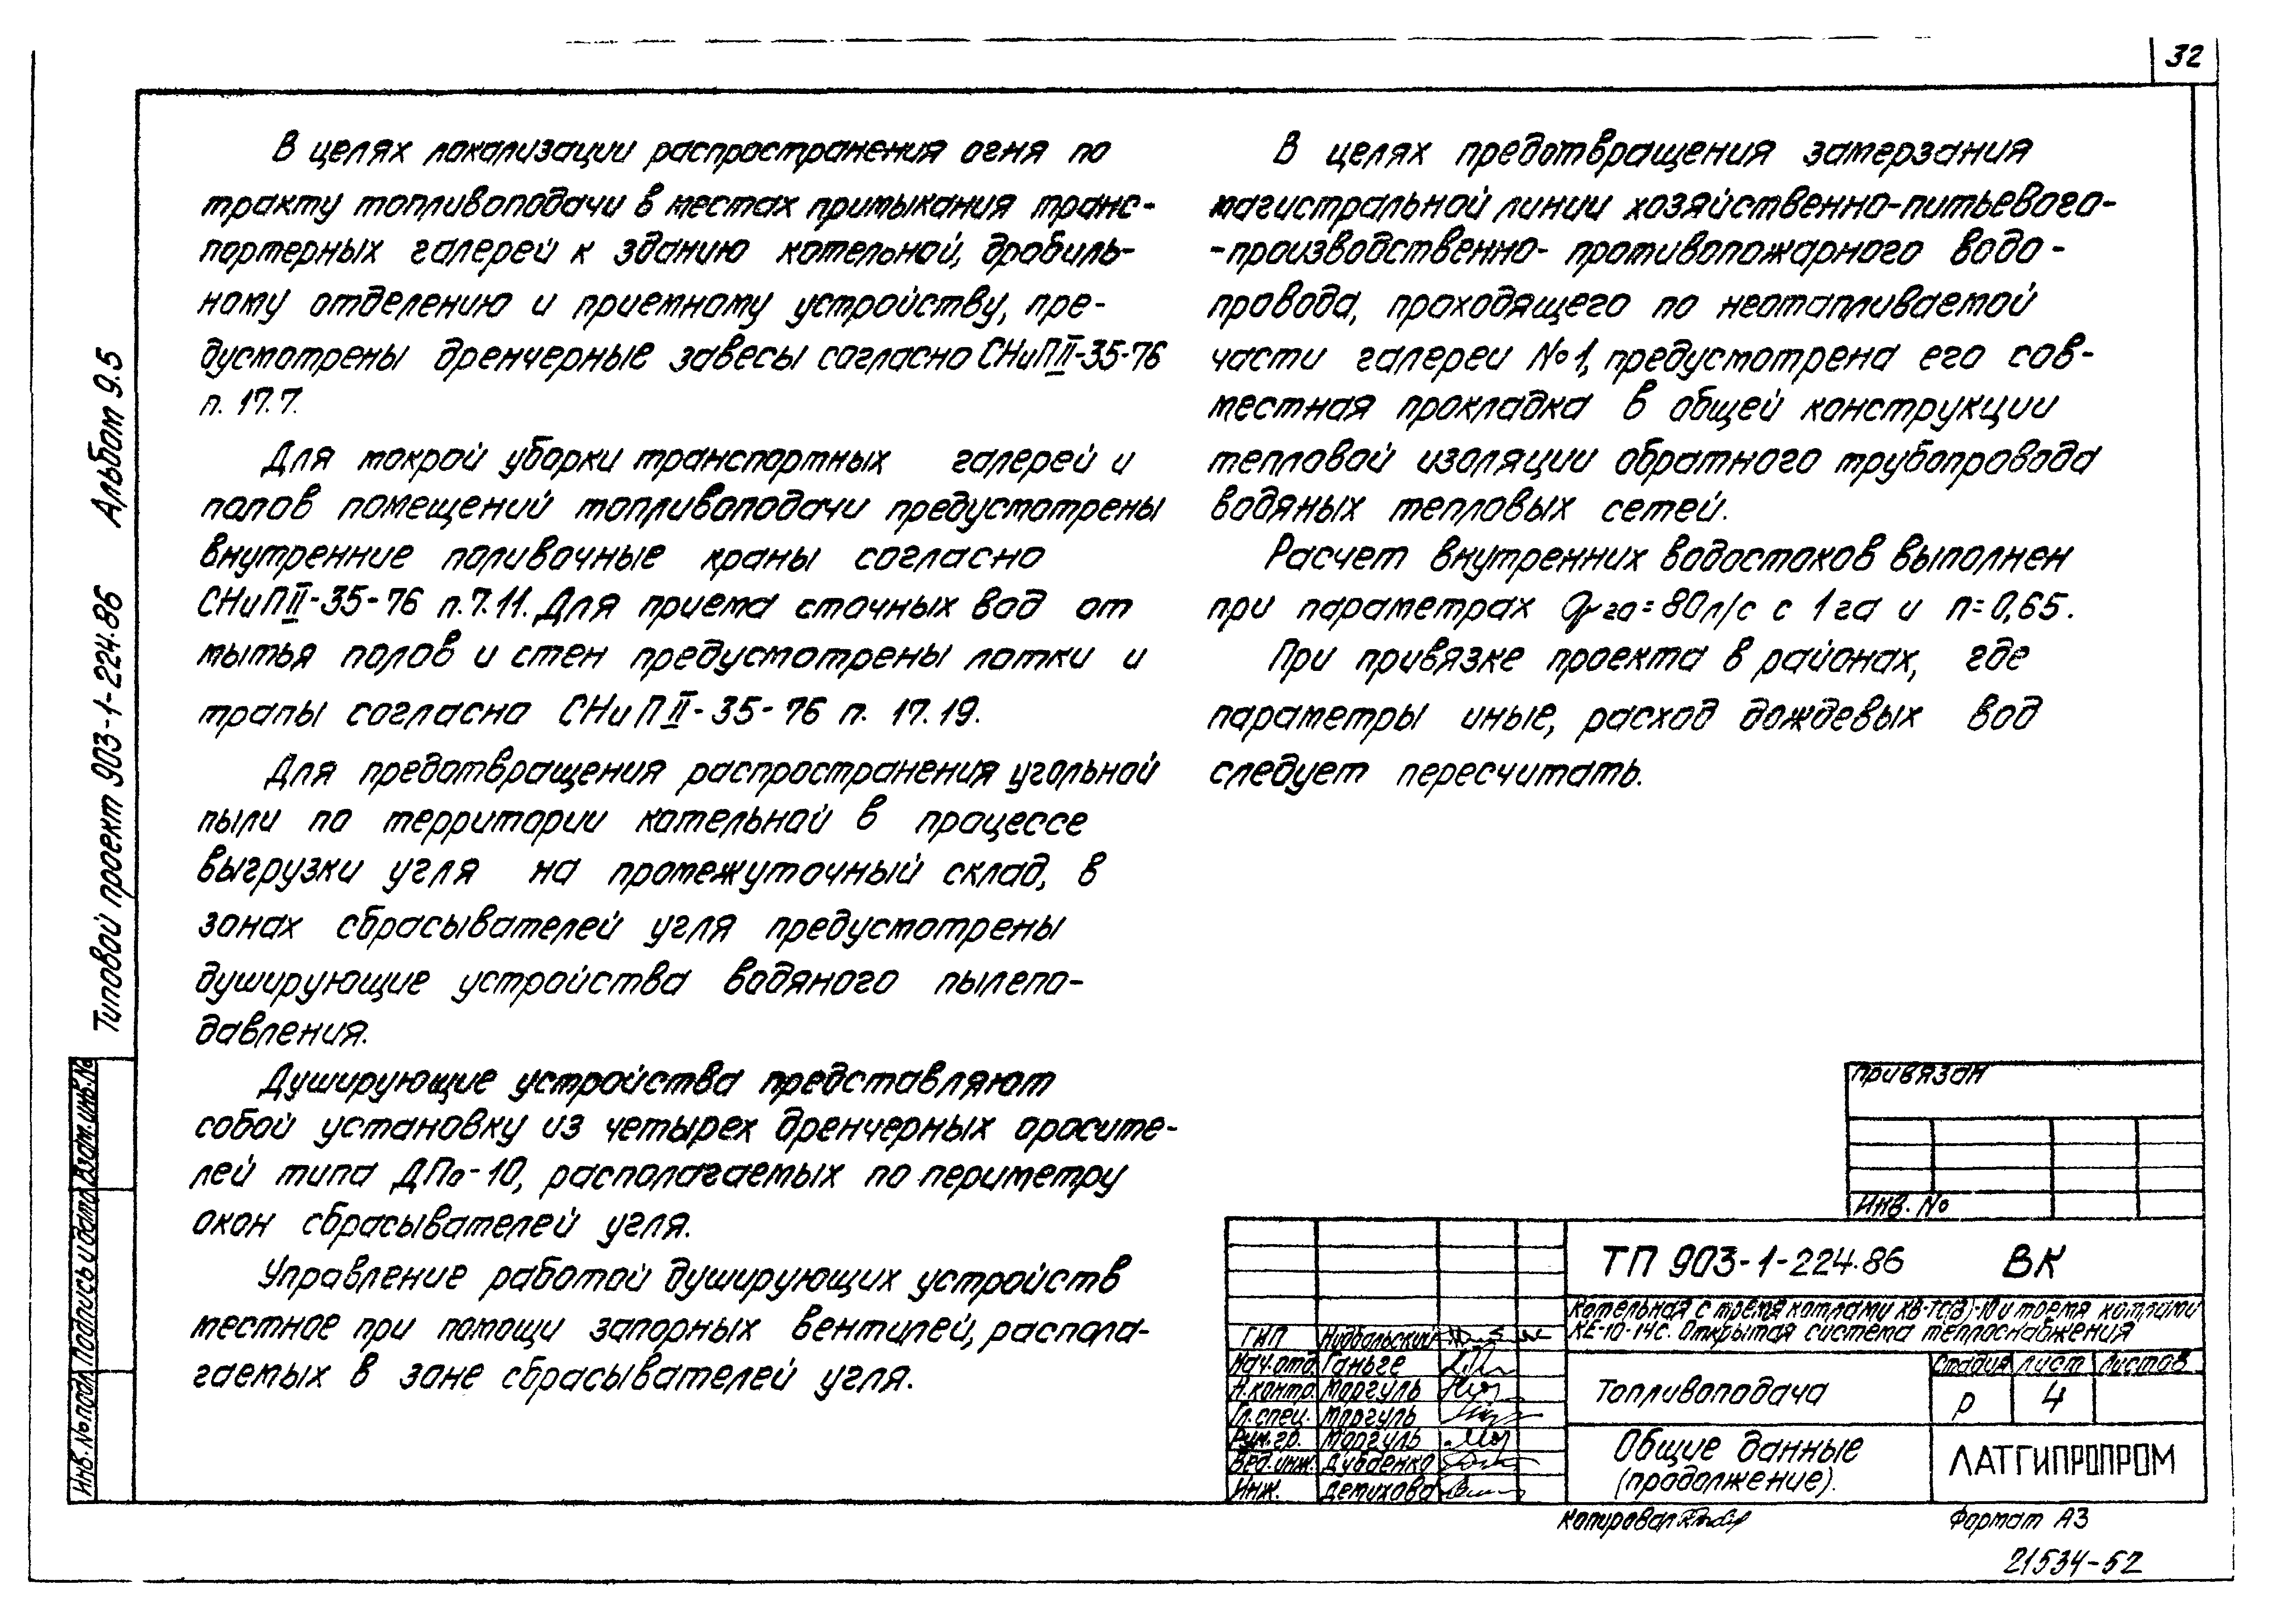 32
В целях локализации распространения огня по
тракту топливоподачи в местах примыкания транс-
портерных галерей к зданию котельной, дробиль-
ному отделению и приемному устройству, пре-
дусмотрены дренчерные завесы согласно СНиП II-35-76
п. 17.7.
Для мокрой уборки транспортных галерей и
полов помещений топливоподачи предусмотрены
внутренние поливочные краны согласно
СНиП II-35-76 п.7.11. Для приема сточных вод от
мытья полов и стен предусмотрены лотки и
трапы согласно СНиП II-35-76 п. 17.19.
Для предотвращения распространения угольной
пыли по территории котельной в процессе
выгрузки угля на промежуточный склад, в
зонах сбрасывателей угля предусмотрены
душирующие устройства водяного пылепо-
давления.
Душирующие устройства представляют
собой установку из четырех дренчерных оросите-
лей типа ДПо-10, располагаемых по периметру
окон сбрасывателей угля.
Управление работой душирующих устройств
местное при помощи запорных вентилей, распола-
гаемых в зоне сбрасывателей угля.
В целях предотвращения замерзания
магистральной линии хозяйственно-питьевого-
-производственно-противопожарного водо-
провода, проходящего по неотапливаемой
части галереи №1, предусмотрена его сов-
местная прокладка в общей конструкции
тепловой изоляции обратного трубопровода
водяных тепловых сетей.
Расчет внутренних водостоков выполнен
при параметрах q га=80л/с с 1га и n=0,65.
При привязке проекта в районах, где
параметры иные, расход дождевых вод
следует пересчитать.
Типовой проект 903-1-224.86 Альбом 9.5
Инв.№подл. Подпись и дата Взам.инв.№
Привязан
Инв. №
ТП 903-1-224.86 ВК
Котельная с тремя котлами КВ-ТС(В)-10 и тремя котлами
КЕ-10-14С. Открытая система теплоснабжения
ГИП Нудбальский
Нач.отд. Ганьге
Н.контр. Моргуль
Гл.спец. Моргуль
Рук.гр. Моргуль
Вед.инж. Дубденко
Инж. Демихова
Топливоподача
Стадия Лист Листов
Р 4
Общие данные
(продолжение).
ЛАТГИПРОПРОМ
Копировал
Формат А3
21534-52